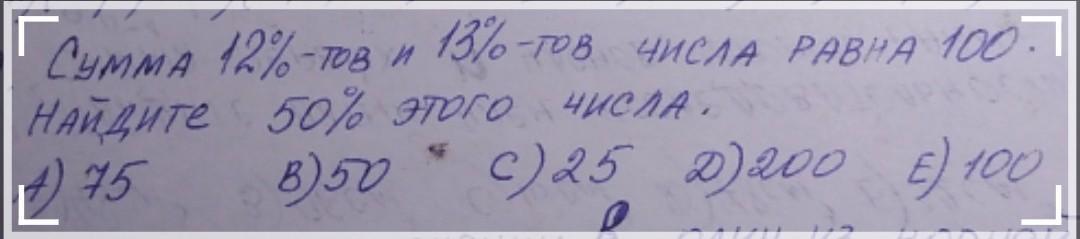 Сумма 12%-тов и 13%-тов числа равна 100.
Найдите 50% этого числа.
A) 75 B) 50 C) 25 D) 200 E) 100